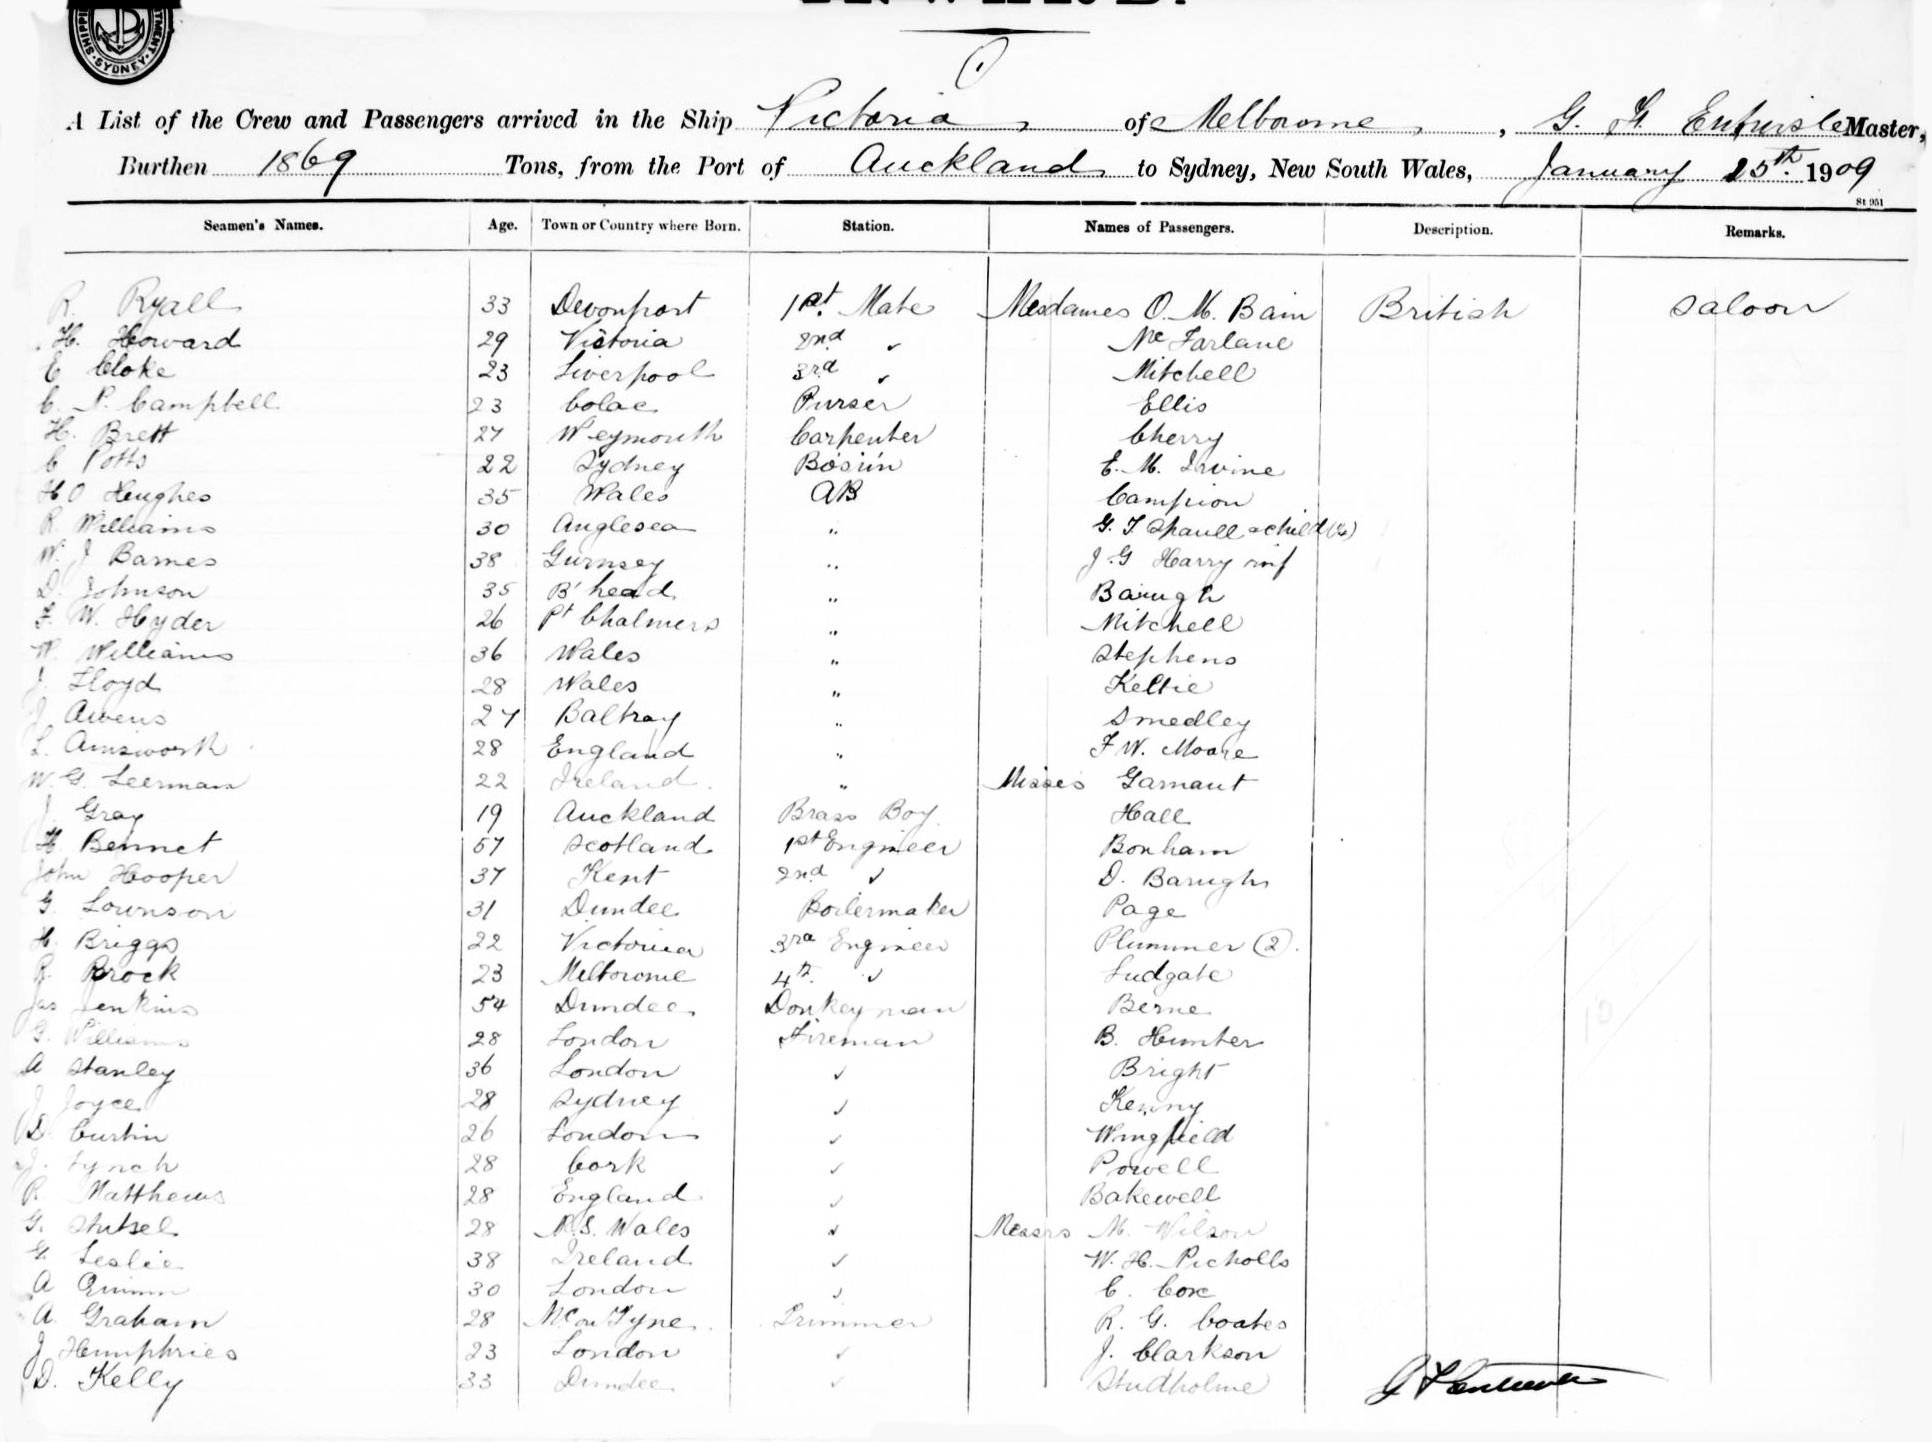 SHIPP
TMENT
SYDNEY
A List of the Crew and Passengers arrived in the Ship Victoria, of Melbourne, G. F. Entwisle Master,
Burthen 1869 Tons, from the Port of Auckland to Sydney, New South Wales, January 25th. 1909
St 951
Seamen's Names. Age. Town or Country where Born. Station. Names of Passengers. Description. Remarks.
R. Ryall 33 Devonport 1st. Mate Mesdames O. M. Bain British Saloon
H. Howard 29 Victoria 2nd ✓ Mc Farlane
E Cloke 23 Liverpool 3rd ✓ Mitchell
C. P. Campbell 23 Colac Purser Ellis
H. Brett 27 Weymouth Carpenter Cherry
C Potts 22 Sydney Bosun E. M. Irvine
H O Hughes 35 Wales AB Campion
R. Williams 30 Anglesea " G. T. Spaull & child
W. J Barnes 38 Gurnsey " J. G Harry inf
D. Johnson 35 B'head " Barugh
F. W. Hyder 26 Pt Chalmers " Mitchell
W. Williams 36 Wales " Stephens
J. Lloyd 28 Wales " Keltie
J. Awens 27 Baltray " Smedley
L. Ainsworth 28 England " F W. Moore
W. G. Leerman 22 Ireland " Misses Garnaut
J. Gray 19 Auckland Brass Boy Hall
H. Bennet 57 Scotland 1st Engineer Bonham
John Hooper 37 Kent 2nd ✓ D. Barugh
G. Lownson 31 Dundee Boilermaker Page
H. Briggs 22 Victoria 3rd Engineer Plummer (2).
R. Brock 23 Melbourne 4th. ✓ Ludgate
Jas Jenkins 54 Dundee Donkeyman Berne
G. Williams 28 London Fireman B. Hunter
A Stanley 36 London ✓ Bright
J Joyce 28 Sydney ✓ Kenny
D. Curtin 26 London ✓ Wingfield
J. Lynch 28 Cork ✓ Powell
R. Matthews 28 England ✓ Bakewell
G. 28 N. S. Wales ✓ Messrs M. Wilson
G. Leslie 38 Ireland ✓ W. H. Nicholls
A Quinn 30 London ✓ C. Cox
A. Graham 28 N'C on Tyne. Trimmer R. G. Coates
J Humphries 23 London ✓ J. Clarkson
D. Kelly 33 Dundee ✓ Studholme